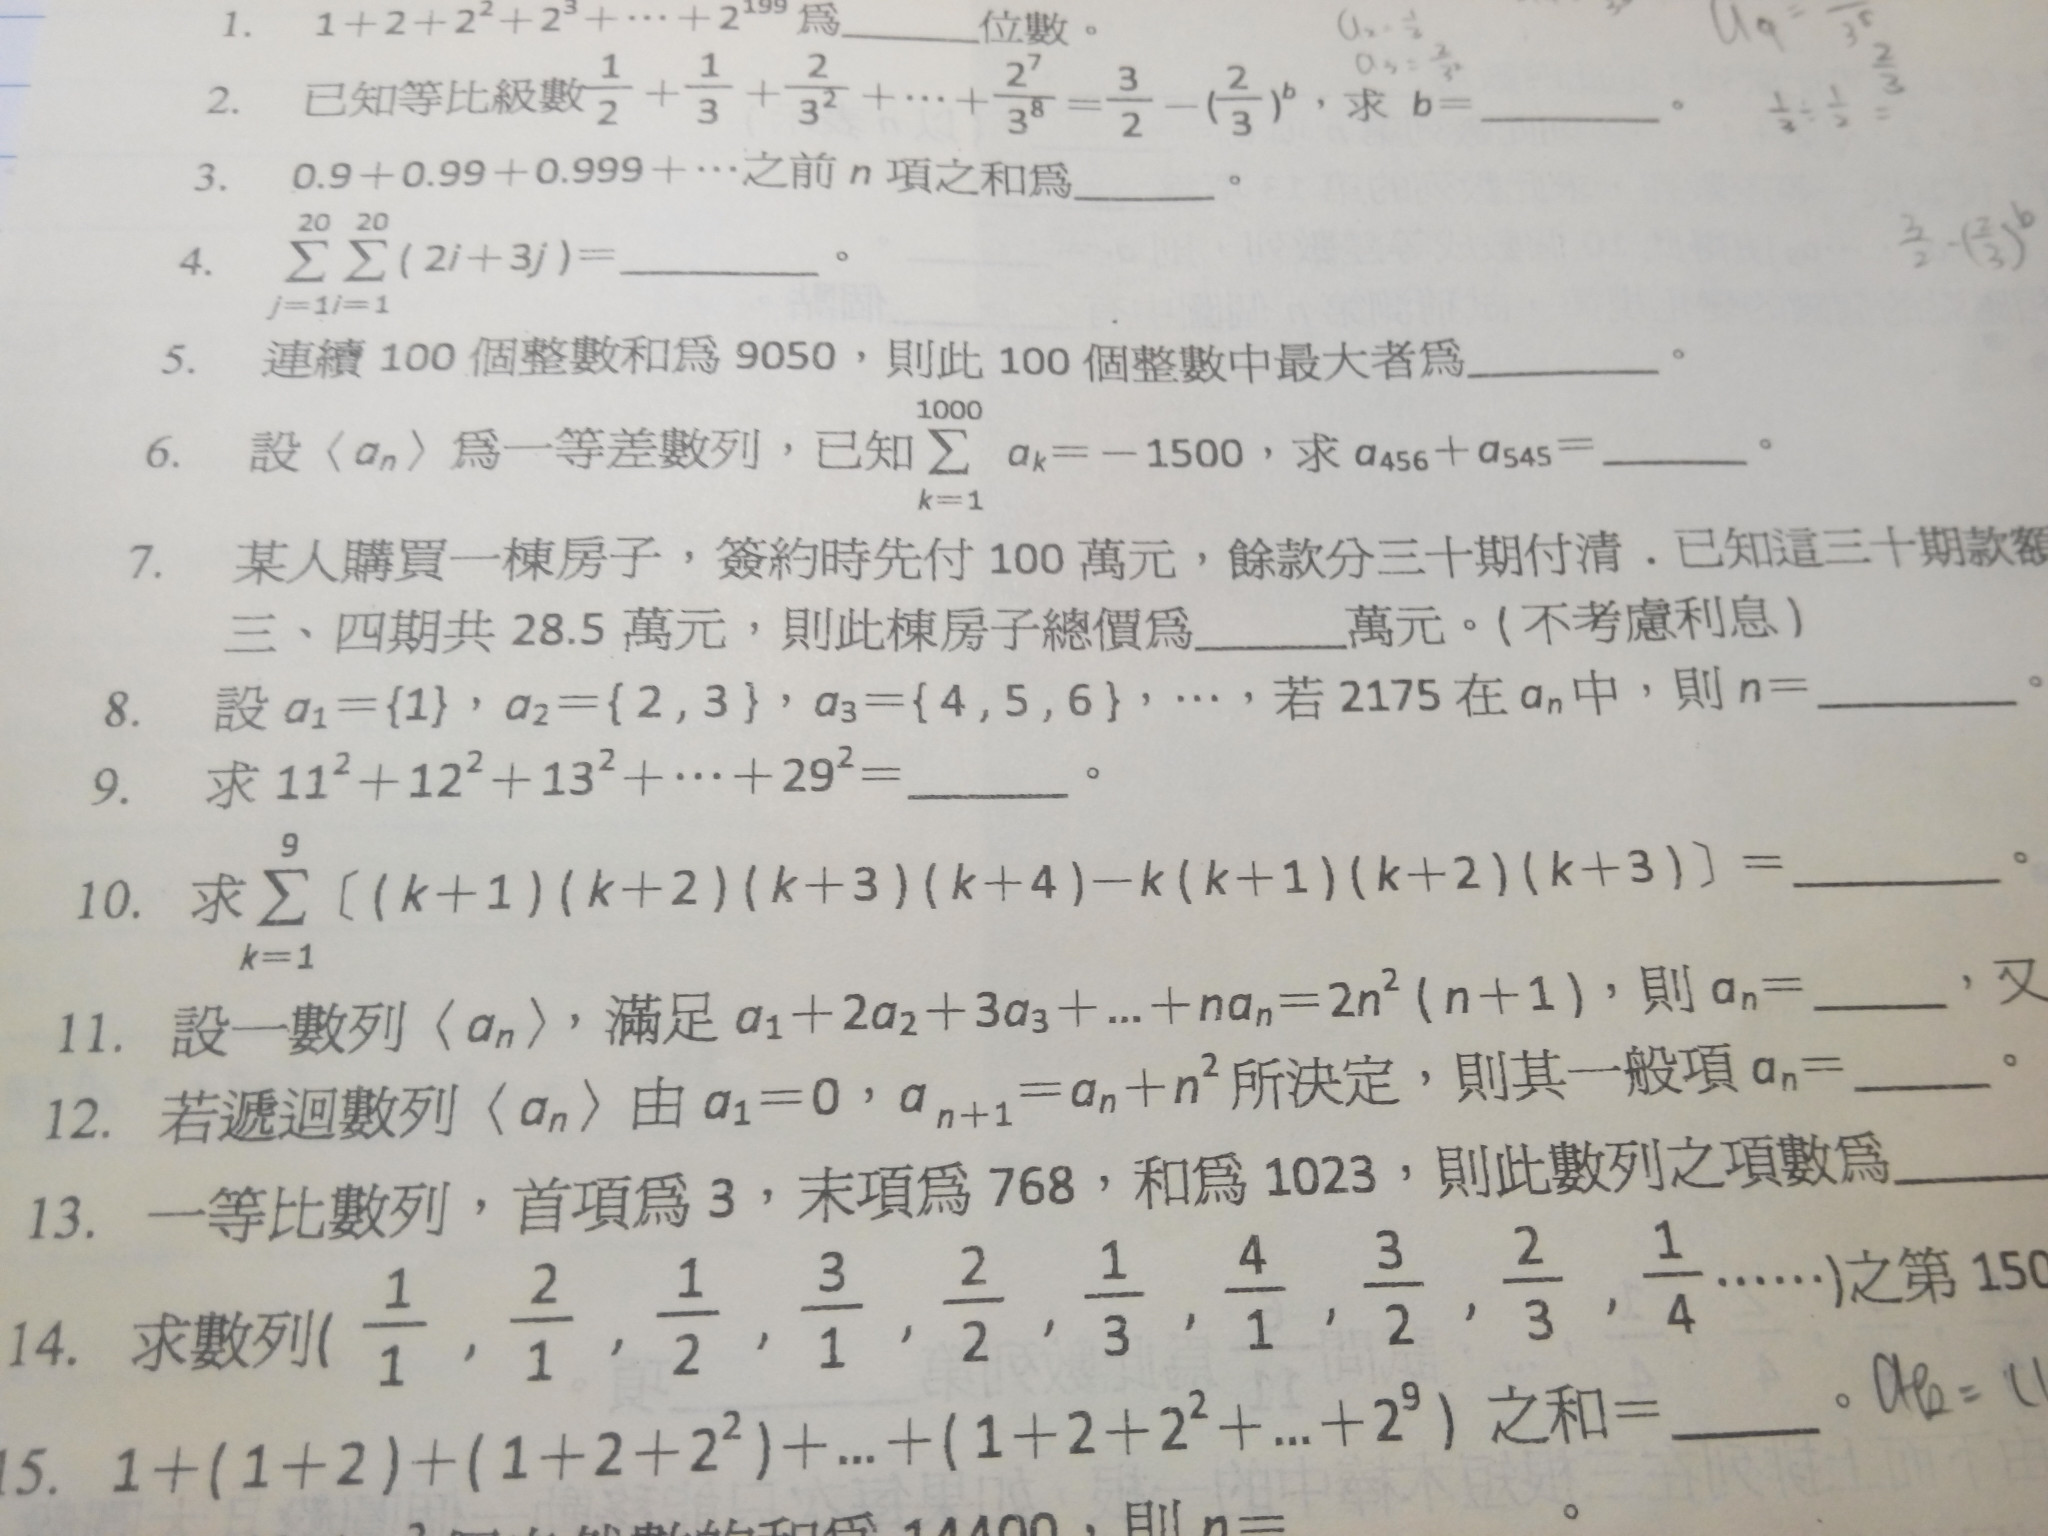 1. 1+2+2²+2³+⋯+2¹⁹⁹為______位數。
2. 已知等比級數 1/2 + 1/3 + 2/3² +⋯+ 2⁷/3⁸ = 3/2 − (2/3)ᵇ,求 b=________。
3. 0.9+0.99+0.999+⋯之前 n 項之和為______。
4. ∑_{j=1}^{20} ∑_{i=1}^{20} (2i+3j)=________。
5. 連續 100 個整數和為 9050,則此 100 個整數中最大者為________。
6. 設〈aₙ〉為一等差數列,已知 ∑_{k=1}^{1000} aₖ=−1500,求 a₄₅₆+a₅₄₅=______。
7. 某人購買一棟房子,簽約時先付 100 萬元,餘款分三十期付清.已知這三十期款額
三、四期共 28.5 萬元,則此棟房子總價為______萬元。(不考慮利息)
8. 設 a₁={1},a₂={2,3},a₃={4,5,6},⋯,若 2175 在 aₙ 中,則 n=________。
9. 求 11²+12²+13²+⋯+29²=______。
10. 求 ∑_{k=1}^{9}〔(k+1)(k+2)(k+3)(k+4)−k(k+1)(k+2)(k+3)〕=________。
11. 設一數列〈aₙ〉,滿足 a₁+2a₂+3a₃+...+naₙ=2n²(n+1),則 aₙ=_____,又
12. 若遞迴數列〈aₙ〉由 a₁=0,aₙ₊₁=aₙ+n² 所決定,則其一般項 aₙ=_____。
13. 一等比數列,首項為 3,末項為 768,和為 1023,則此數列之項數為______
14. 求數列( 1/1 , 2/1 , 1/2 , 3/1 , 2/2 , 1/3 , 4/1 , 3/2 , 2/3 , 1/4 ⋯⋯)之第 150
15. 1+(1+2)+(1+2+2²)+...+(1+2+2²+...+2⁹) 之和=_____。
14400,則 n=______。
3/2-(2/3)ᵇ
1/3÷1/2=2/3